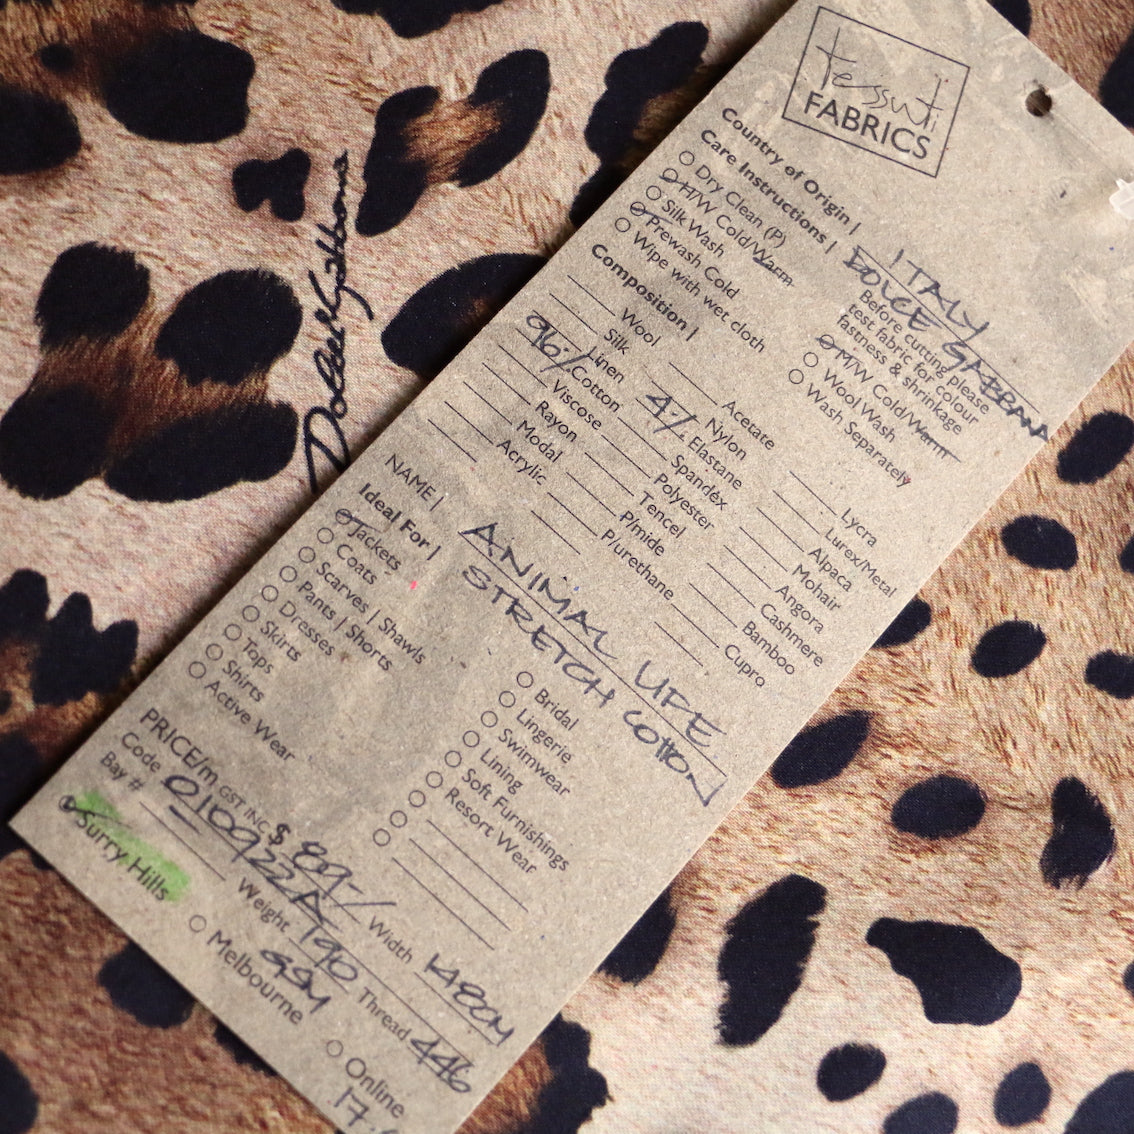 tessuti
FABRICS
Country of Origin | ITALY
Care Instructions | DOLCE GABBANA
Dry Clean (P)
H/W Cold/Warm
Silk Wash
Prewash Cold
Wipe with wet cloth
Before cutting please
test fabric for colour
fastness & shrinkage
M/W Cold/Warm
Wool Wash
Wash Separately
Composition |
Wool
Silk
Linen
96% Cotton
Viscose
Rayon
Modal
Acrylic
Acetate
Nylon
4% Elastane
Spandex
Polyester
Tencel
P/mide
P/urethane
Lycra
Lurex/Metal
Alpaca
Mohair
Angora
Cashmere
Bamboo
Cupro
NAME | ANIMAL LIFE
STRETCH COTTON
Ideal For |
Jackets
Coats
Scarves | Shawls
Pants | Shorts
Dresses
Skirts
Tops
Shirts
Active Wear
Bridal
Lingerie
Swimwear
Lining
Soft Furnishings
Resort Wear
PRICE/m GST INC $ 89-/ Width 148CM
Code 010922A Weight 190 Thread 446
GSM
Bay #
Surry Hills
Melbourne
Online
17.
Dolce & Gabbana